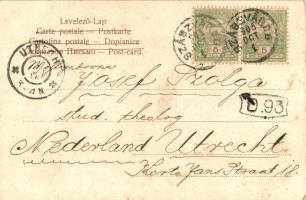 Levelező-Lap
Carte postale — Postkarte
Cartolina postale — Dopisnice
Post-card.
UTRECHT
4 N
5
5
Josef Szolga
stud. theolog
Nederland Utrecht
Korte Jans Straat 18.
D.93